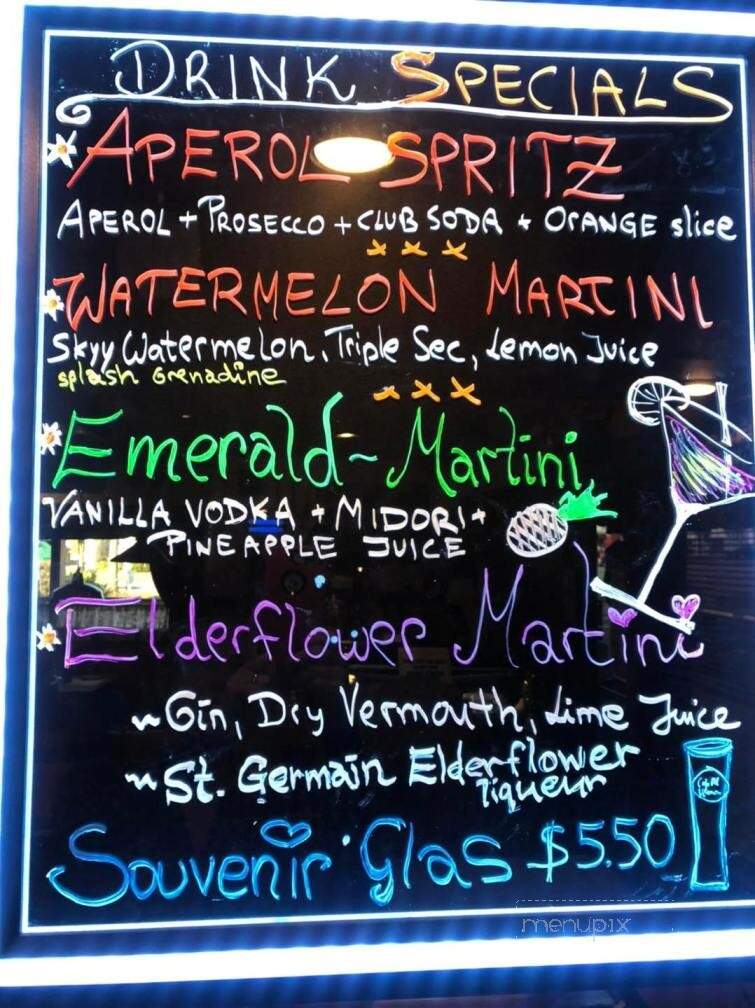 DRINK SPECIALS
APEROL SPRITZ
APEROL + PROSECCO + CLUB SODA + ORANGE slice
WATERMELON MARTINI
Skyy Watermelon, Triple Sec, Lemon Juice
splash Grenadine
Emerald~Martini
VANILLA VODKA + MIDORI +
PINEAPPLE JUICE
Elderflower Martini
~Gin, Dry Vermouth, Lime Juice
~St. Germain Elderflower
liqueur
Souvenir Glas $5.50
menupix